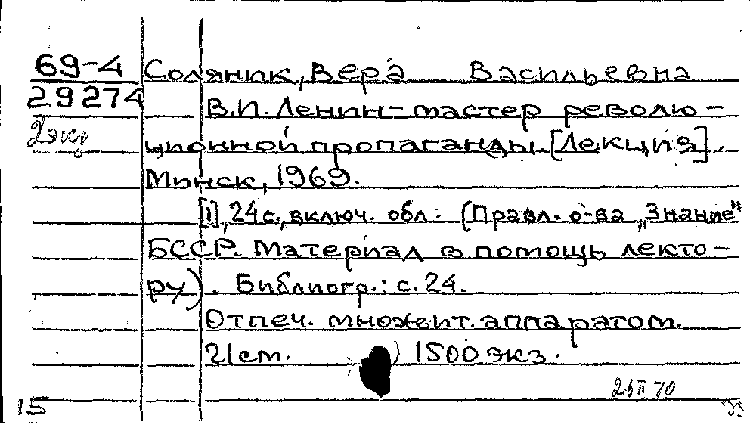 69-4 Соляник, Вера Васильевна
29274 В.И. Ленин - мастер револю-
2 экз ционной пропаганды. [Лекция].
Минск, 1969.
[1], 24 с., включ. обл. (Правл. о-ва „Знание"
БССР. Материал в помощь лекто-
ру). Библиогр.: с. 24.
Отпеч. множит. аппаратом.
21 см. 1500 экз.
15